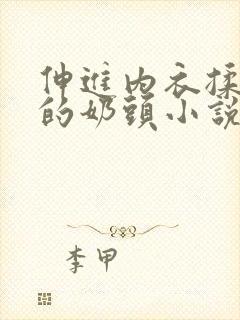 伸進內衣揉
的奶頭小說
李甲